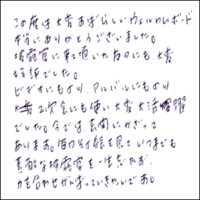 この度は大変すばらしいウェルカムボード
本当にありがとうございました。
披露宴に来て頂いた方々にも大変
好評でした。
ビデオにもより、アルバムにもより
2次会にも使い大変大活躍
でした。今では玄関にかざって
あります。毎日その絵を見ていつまでも
素敵な披露宴を一生忘れず、
力を合わせがんばっていきたいです。